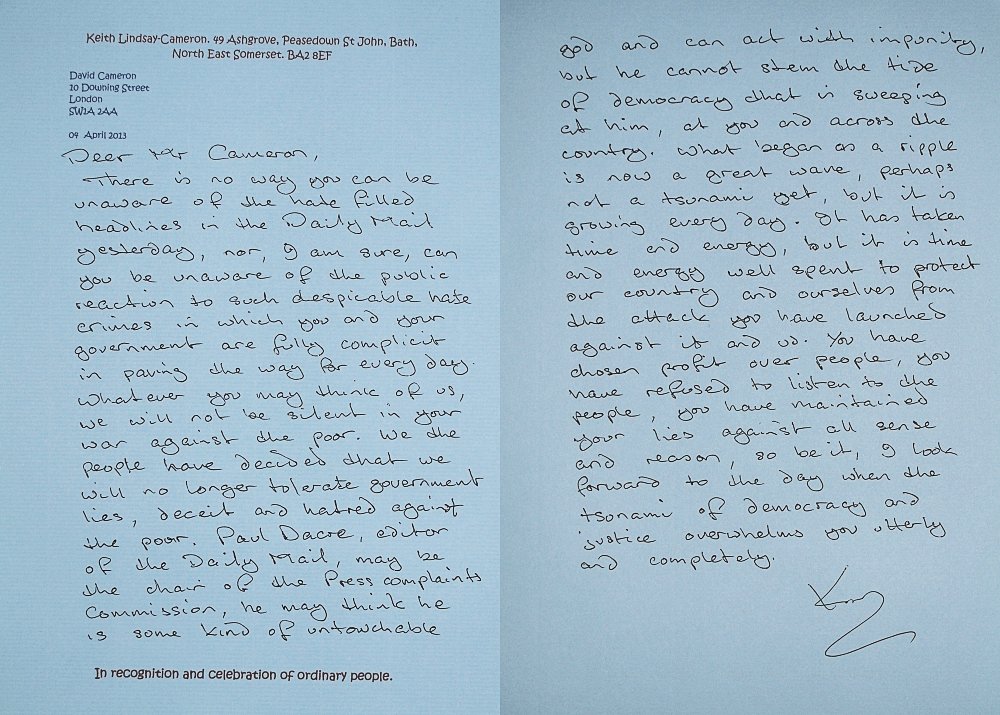 Keith Lindsay-Cameron. 49 Ashgrove, Peasedown St John, Bath,
North East Somerset. BA2 8EF
David Cameron
10 Downing Street
London
SW1A 2AA
04 April 2013
Dear Mr Cameron,
There is no way you can be
unaware of the hate filled
headlines in the Daily Mail
yesterday, nor, I am sure, can
you be unaware of the public
reaction to such despicable hate
crimes in which you and your
government are fully complicit
in paving the way for every day.
Whatever you may think of us,
we will not be silent in your
war against the poor. We the
people have decided that we
will no longer tolerate government
lies, deceit and hatred against
the poor. Paul Dacre, editor
of the Daily Mail, may be
the chair of the Press complaints
Commission, he may think he
is some kind of untouchable
In recognition and celebration of ordinary people.
god and can act with impunity,
but he cannot stem the tide
of democracy that is sweeping
at him, at you and across the
country. What began as a ripple
is now a great wave, perhaps
not a tsunami yet, but it is
growing every day. It has taken
time and energy, but it is time
and energy well spent to protect
our country and ourselves from
the attack you have launched
against it and us. You have
chosen profit over people, you
have refused to listen to the
people, you have maintained
your lies against all sense
and reason, so be it, I look
forward to the day when the
tsunami of democracy and
justice overwhelms you utterly
and completely.